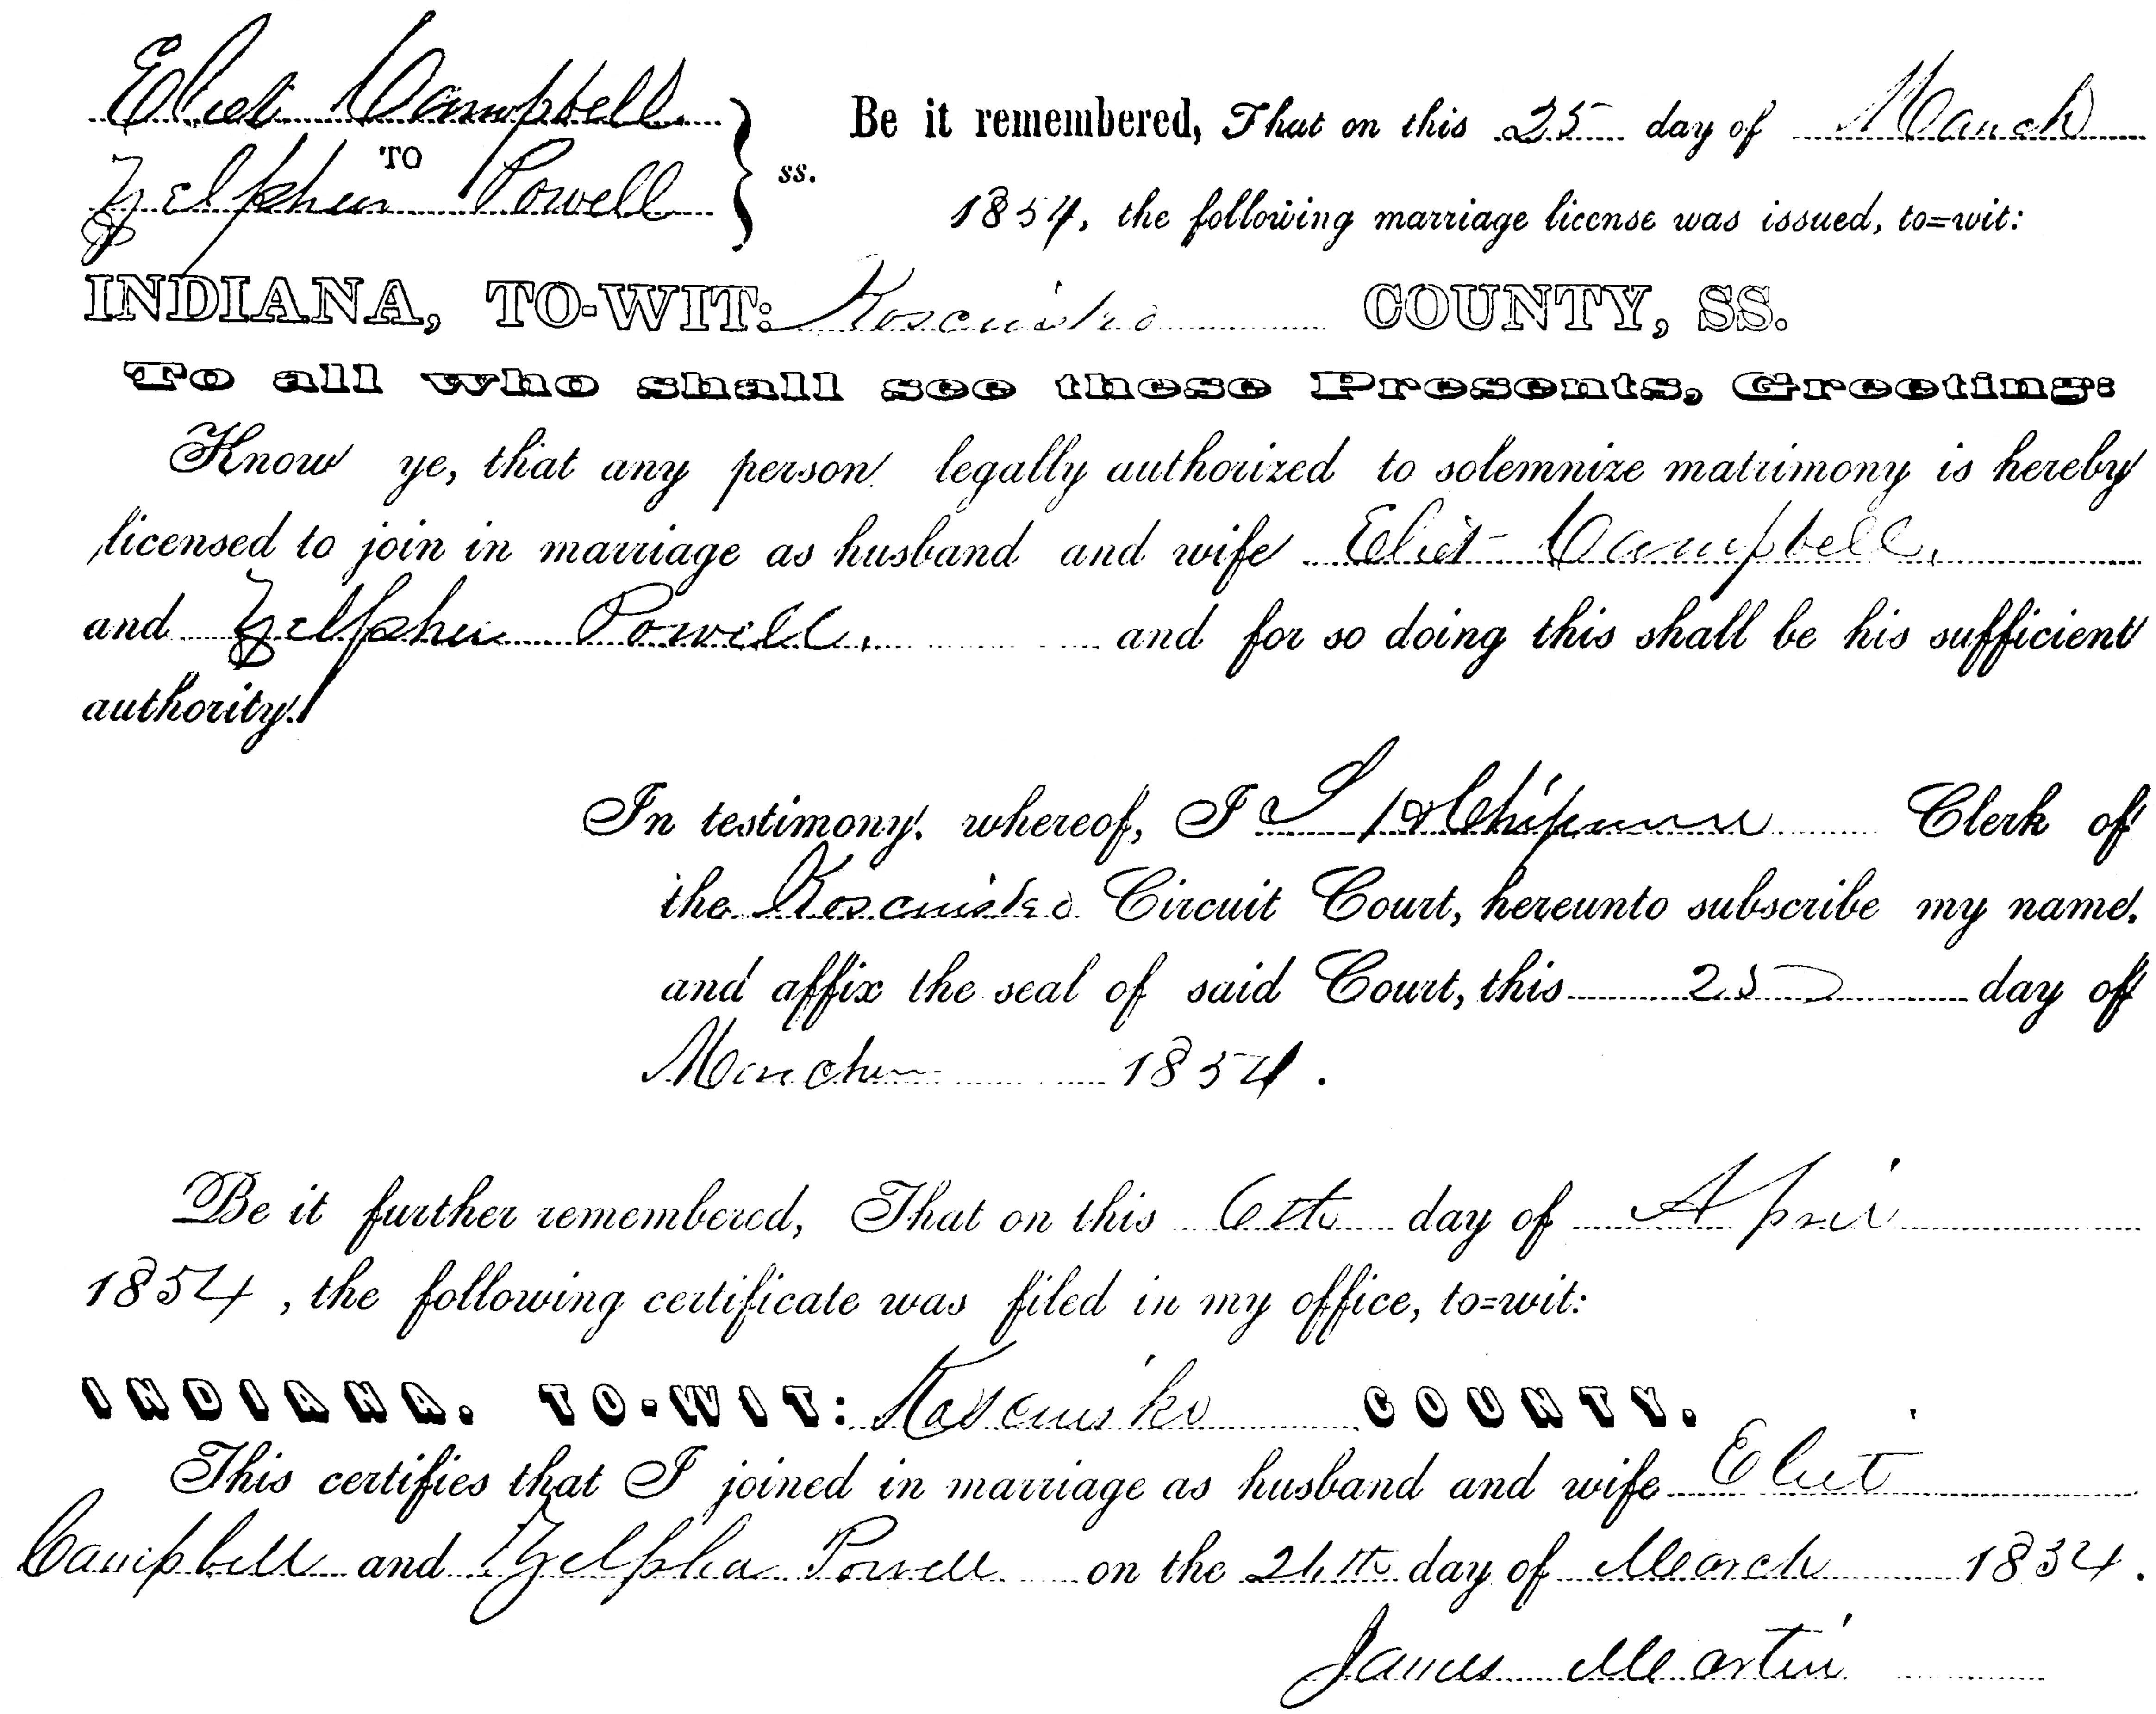 Eliet Campbell
TO
Zelpher Powell
ss.
Be it remembered, That on this 25 day of March
1854, the following marriage license was issued, to=wit:
INDIANA, TO-WIT: Kosciusko COUNTY, SS.
To all who shall see these Presents, Greeting:
Know ye, that any person legally authorized to solemnize matrimony is hereby
licensed to join in marriage as husband and wife Eliet Campbell,
and Zelpher Powell. and for so doing this shall be his sufficient
authority.
In testimony whereof, I Chipman Clerk of
the Kosciusko Circuit Court, hereunto subscribe my name,
and affix the seal of said Court, this 25 day of
March 1854.
Be it further remembered, That on this 6th day of April
1854, the following certificate was filed in my office, to=wit:
INDIANA. TO-WIT: Kosciusko COUNTY.
This certifies that I joined in marriage as husband and wife Eliet
Campbell and Zelpha Powell on the day of March 1854.
James Martin